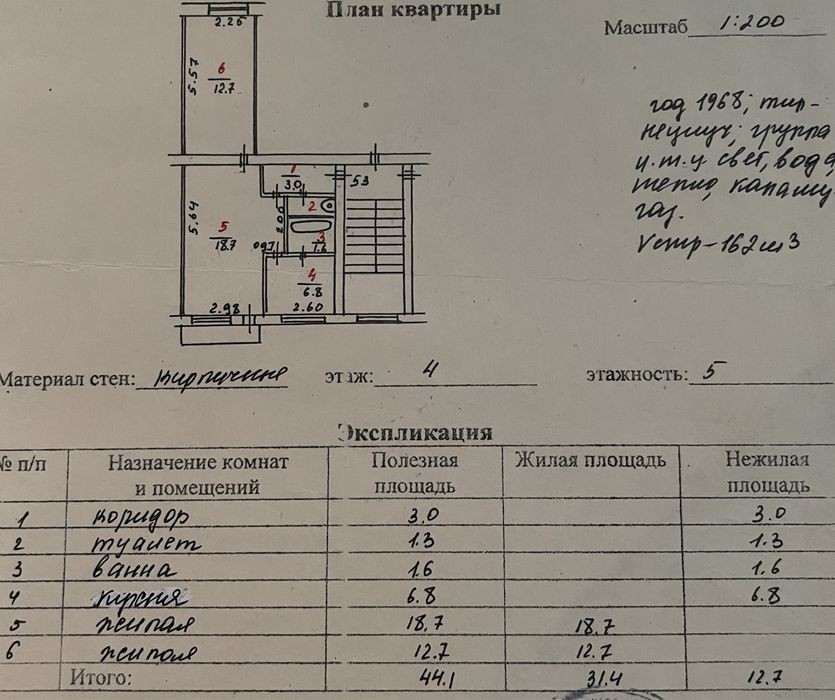 План квартиры
Масштаб 1:200
2.26
5.57
6
12.7
год 1968; тир-
неулуч; группа
и.т.у свет, вода,
тепло, канализ
газ.
Vстр-162 м3
1
3.0
53
5.64
5
18.7
2
3
1.6
4
6.8
2.98
2.60
Материал стен: кирпичные этаж: 4 этажность: 5
Экспликация
№ п/п Назначение комнат и помещений Полезная площадь Жилая площадь Нежилая площадь
1 коридор 3.0 3.0
2 туалет 1.3 1.3
3 ванна 1.6 1.6
4 кухня 6.8 6.8
5 жилая 18.7 18.7
6 жилая 12.7 12.7
Итого: 44.1 31.4 12.7